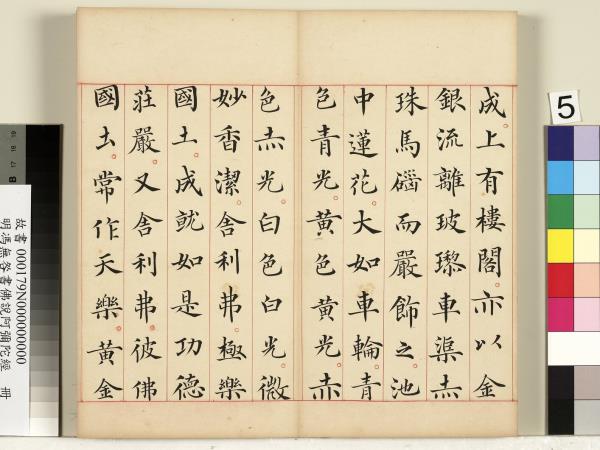 成。上有樓閣。亦以金
銀流離玻瓈車渠赤
珠馬碯而嚴飾之。池
中蓮花。大如車輪。青
色青光。黃色黃光。赤
色赤光。白色白光。微
妙香潔。舍利弗。極樂
國土。成就如是功德
莊嚴。又舍利弗。彼佛
國土。常作天樂。黃金
5
故書 000179N000000000
明馮無咎書佛說阿彌陀經 冊
B